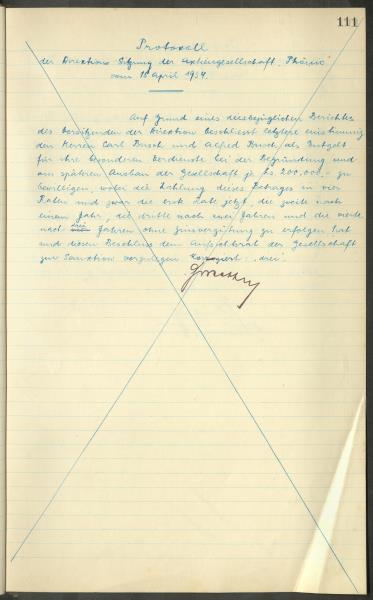 111
Protokoll
der Direktions Sitzung der Aktiengesellschaft "Phönix"
vom 18 April 1934.
Auf Grund eines diesbezüglichen Berichtes
des Vorsitzenden der Direktion beschliesst letztere einstimmig
den Herren Carl Busch und Alfred Busch, als Entgelt
für ihre besonderen Verdienste bei der Begründung und
am späteren Ausbau der Gesellschaft je 200.000.- zu
bewilligen, wobei die Zahlung dieses Betrages in vier
Raten und zwar die erste Rate jetzt, die zweite nach
einem Jahr, die dritte nach zwei Jahren und die vierte
nach drei Jahren ohne Zinsvergütung zu erfolgen hat
und diesen Beschluss dem Aufsichtsrat der Gesellschaft
zur Sanktion vorzulegen. Korrigiert: "drei".